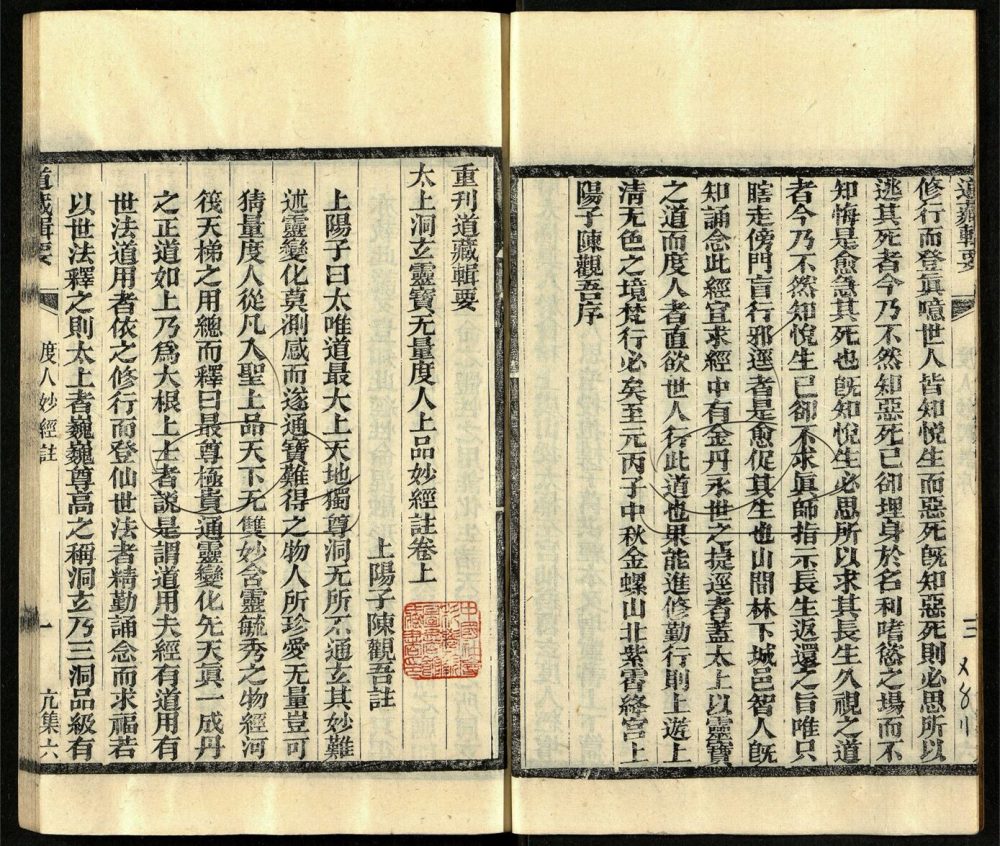 道藏輯要
三
修行而登眞噫世人皆知悅生而惡死旣知惡死則必思所以
逃其死者今乃不然知惡死已卻埋身於名利嗜慾之場而不
知悔是愈急其死也旣知悅生必思所以求其長生久視之道
者今乃不然知悅生已卻不求眞師指示長生返還之旨唯只
瞎走傍門盲行邪逕者是愈促其生也山間林下城邑智人旣
知誦念此經宜求經中有金丹永世之捷逕者葢太上以靈寶
之道而度人者直欲世人行此道也果能進修勤行則上遊上
清无色之境梵行必矣至元丙子中秋金螺山北紫霄絳宮上
陽子陳觀吾序
重刊道藏輯要
太上洞玄靈寶无量度人上品妙經註卷上
上陽子陳觀吾註
上陽子曰太唯道最大上天地獨尊洞无所不通玄其妙難
述靈變化莫測感而遂通寶難得之物人所珍愛无量豈可
猜量度人從凡入聖上品天下无雙妙含靈毓秀之物經河
筏天梯之用總而釋曰最尊極貴通靈變化先天眞一成丹
之正道如上乃爲大根上士者說是謂道用夫經有道用有
世法道用者依之修行而登仙世法者精勤誦念而求福若
以世法釋之則太上者巍巍尊高之稱洞玄乃三洞品級有
道藏輯要
度人妙經註
一
亢集六